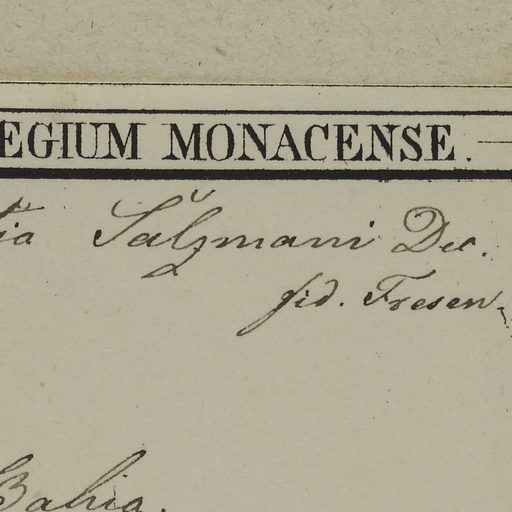 EGIUM MONACENSE.
tia Salzmani Dec.
fid. Fresen.
Bahia.